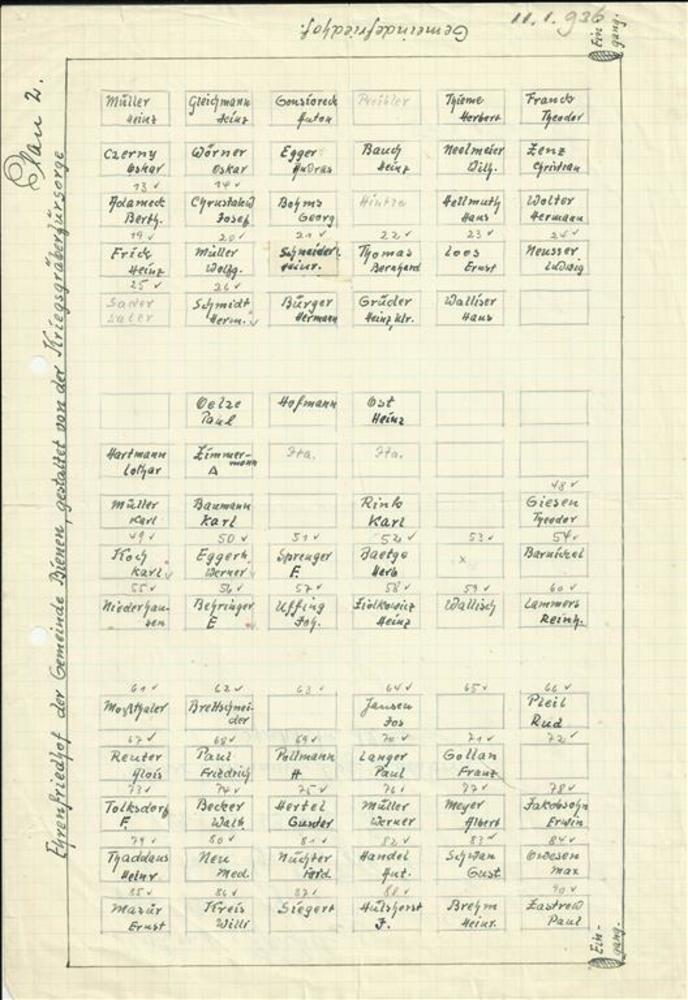 11.1.936
Gemeindefriedhof.
Plan 2.
Ehrenfriedhof der Gemeinde Bienen, gestaltet von der Kriegsgräberfürsorge
Ein-
gang.
Müller Gleichmann Gonsioreck Preibler Thieme Franck
Heinz Heinz Anton Herbert Theodor
Czerny Wörner Egger Bauch Neelmeier Zenz
Oskar Oskar Andräs Heinz Wilh. Christian
13 14
Adameck Chrustalew Bohms Hintze Hellmuth Wolter
Berth. Josef Georg Hans Hermann
19 20 21 22 23 24
Frick Müller Schneider Thomas Loos Neusser
Heinz Wolfg. Heinr. Bernhard Ernst Ludwig
25 26
Sader Schmidt Bürger Grüder Walliser
Herm. Hermann Heinz Wlr. Hans
Oelze Hofmann Ost
Paul Heinz
Hartmann Zimmer- Ita. Ita.
Lothar A mann
48
Müller Baumann Rink Giesen
Karl Karl Karl Theodor
49 50 51 52 53 54
Koch Eggert Sprenger Baetge x Barnickel
Karl Werner F. Herb
55 56 57 58 59 60
Niederhau- Behringer Uffing Ziolkowicz Wallisch Lammers
sen E Joh. Heinz Reinh.
61 62 63 64 65 66
Moosthaler Brettschnei- Jansen Pleil
der Jos Rud
67 68 69 70 71 72
Reuter Paul Pollmann Langer Gollan
Alois Friedrich H Paul Franz
73 74 75 76 77 78
Tolksdorf Becker Hertel Müller Meyer Jakobsohn
F. Walt. Gunder Werner Albert Erwin
79 80 81 82 83 84
Thaddäus Neu Nüchter Handel Schwan Owesen
Heinr Med. Ferd. Ant. Gust Max
85 86 87 88 90
Masür Kreis Siegert Hülshorst Brehm Zastrow
Ernst Willi F. Heinr. Paul
Ein-
gang.